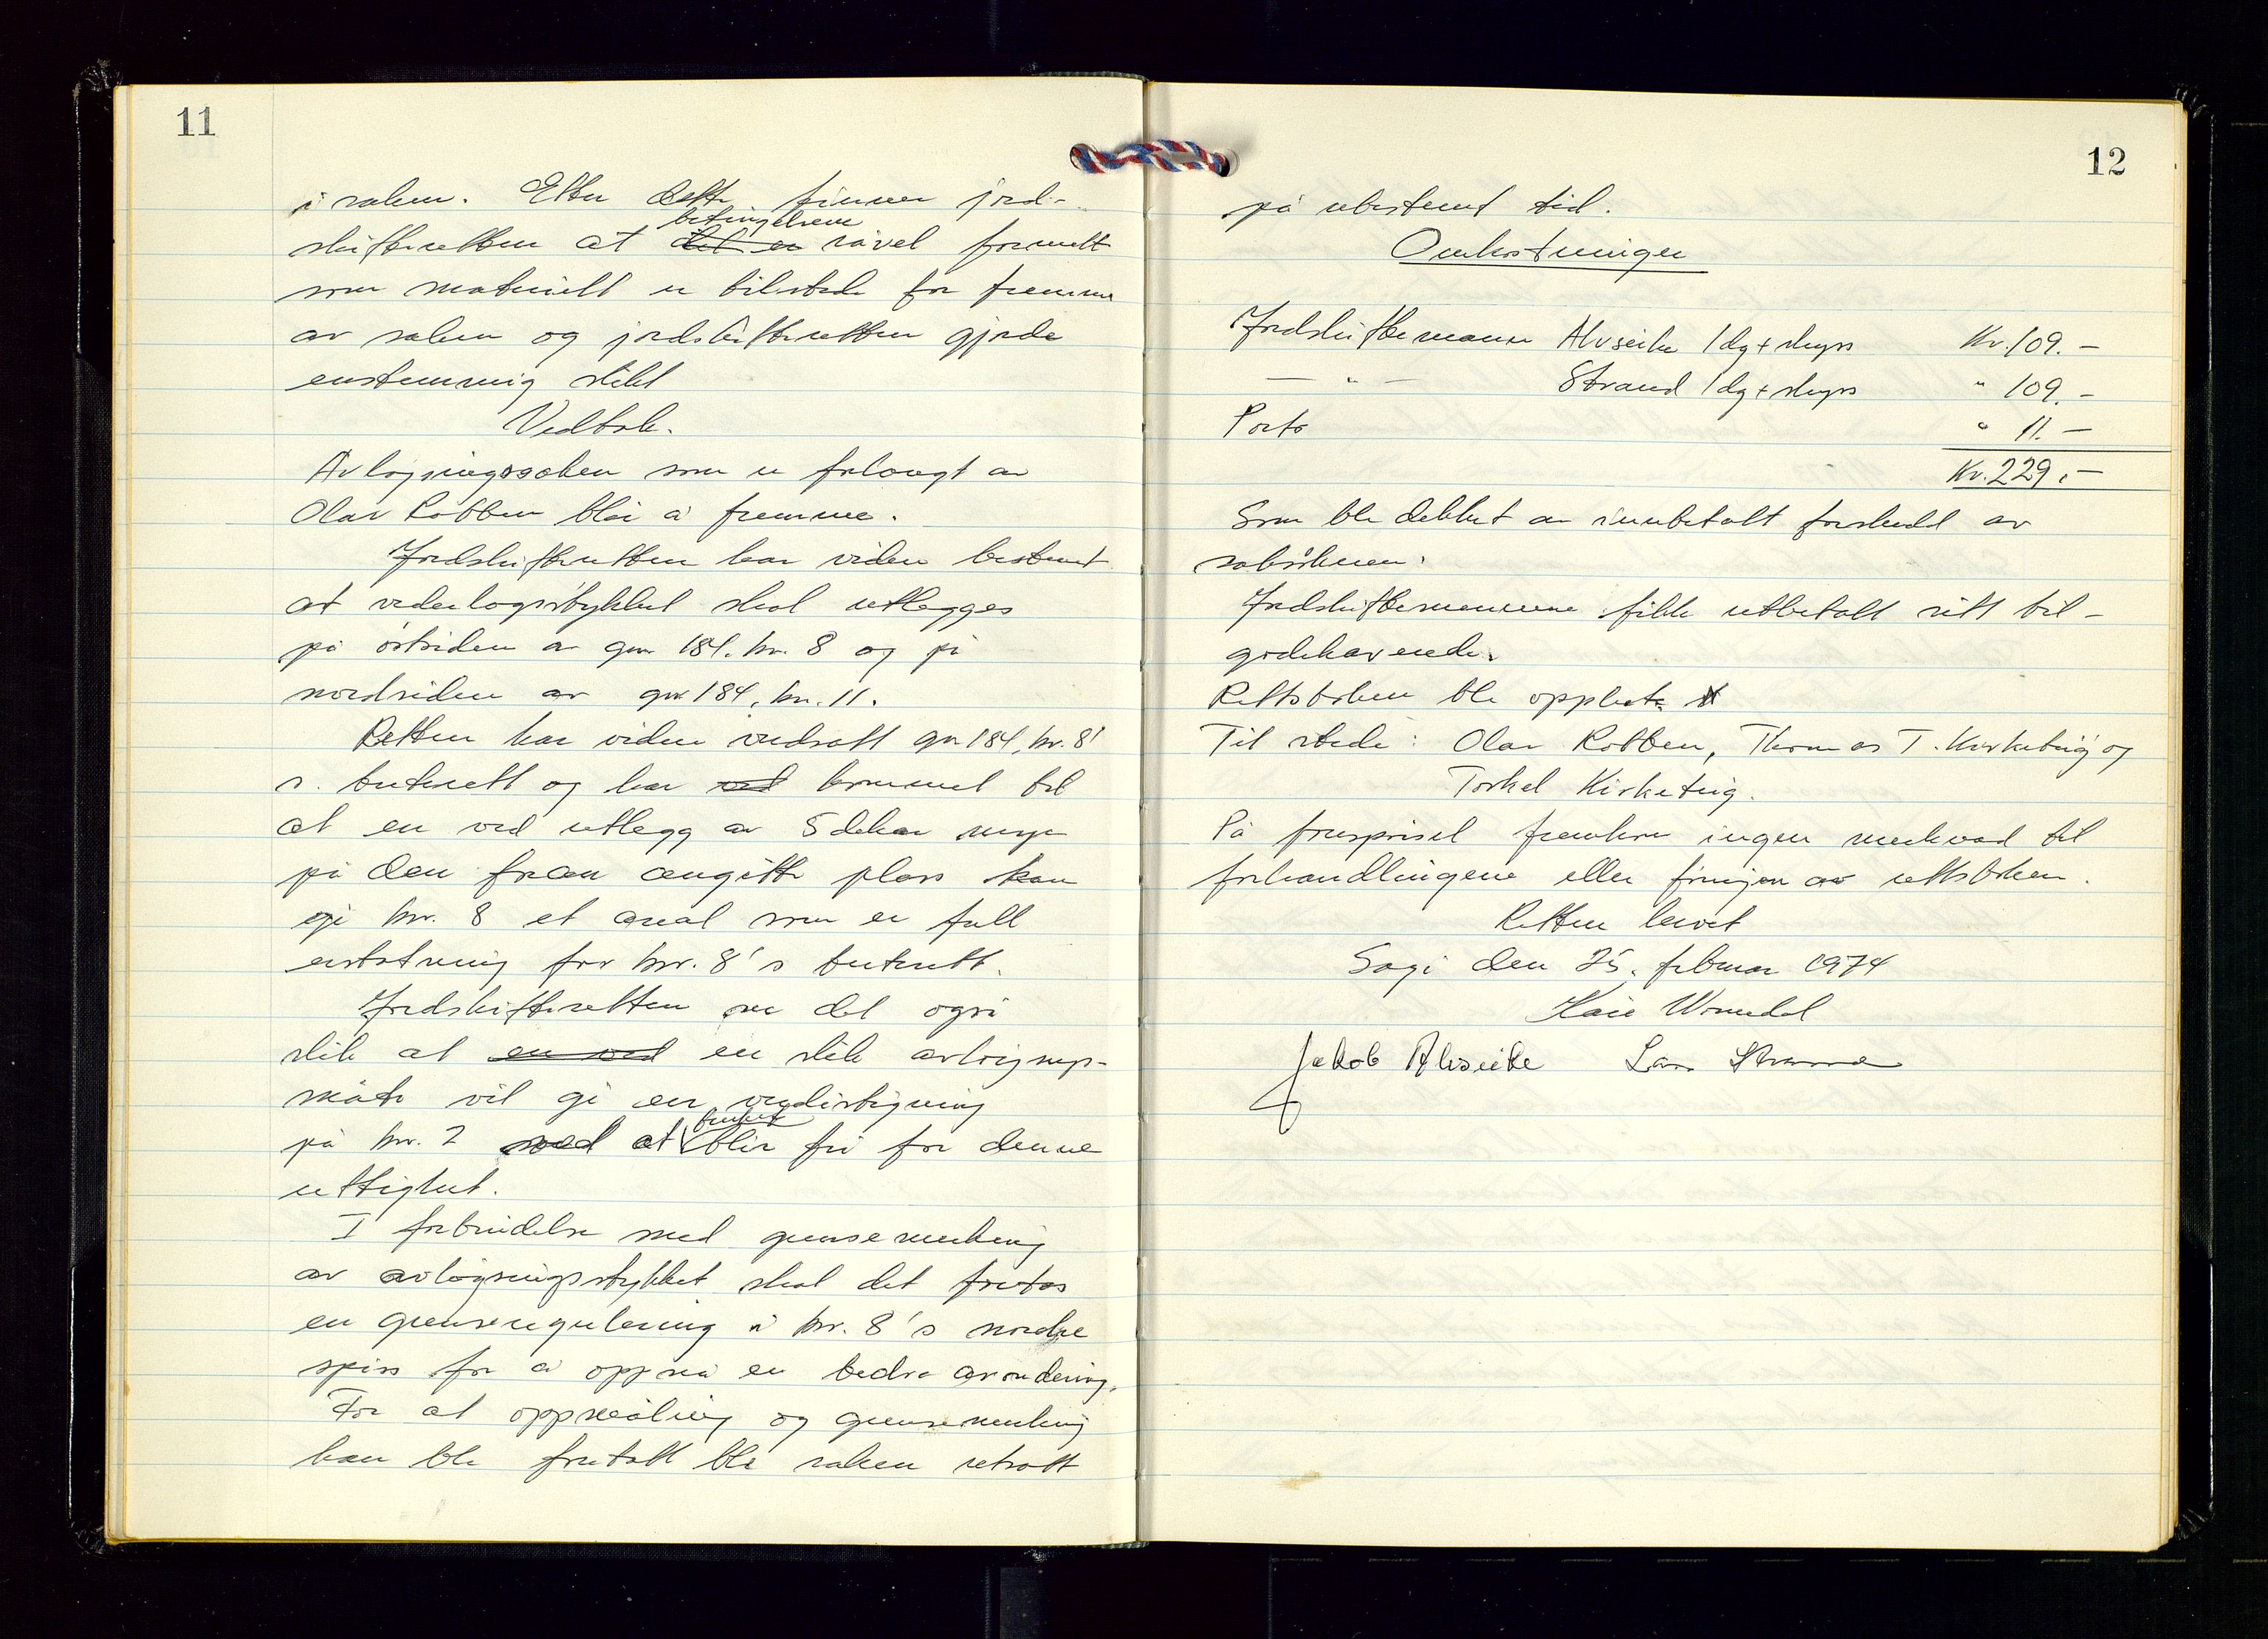 11
i saken. Etter dette finner jord-
skifteretten at betingelsene såvel formelt
som materielt er tilstede for fremme
av saken og jordskifteretten gjorde
enstemmig slikt
Vedtak.
Avløysingssaken som er forlangt av
Olav Robben blir å fremme.
Jordskifteretten har videre bestemt
at vederlagsstykket skal utlegges
på østsiden av gnr 184, bnr. 8 og på
nordsiden av gnr 184, bnr. 11.
Retten har videre verdsatt gnr 184, bnr. 8'
s. beiterett og har ved kommet til
at en ved utlegg av 5 dekar mye
på den foran angitte plass kan
gi bnr. 8 et areal som er full
erstatning for bnr. 8's beiterett.
Jordskifteretten ser det også
slik at en ved en slik avløysings-
måte vil gi en verdistigning
på bnr. 2 ved at bruket blir fri for denne
rettighet.
I forbindelse med grensemerking
av avløysingsstykket skal det foretas
en grenseregulering i bnr. 8's nordre
spiss for å oppnå en bedre avrundering.
For at oppmåling og grensemerking
kan bli foretatt ble saken utsatt
12
på ubestemt tid.
Omkostninger
Jordskiftemann Alvseike 1 dg + skyss Kr. 109.-
— " — Strand 1 dg + skyss " 109.-
Porto " 11.-
Kr. 229.-
Som ble dekket av innbetalt forskudd av
saksøkeren.
Jordskiftemennene fikk utbetalt sitt til-
godehavende.
Rettsboken ble opplest
Til stede: Olav Robben, Thomas T. Kirketeig og
Torkel Kirketeig.
På forespørsel fremkom ingen merknad til
forhandlingene eller føringen av rettsboken.
Retten hevet
Sagi den 25. februar 1974
Kåre Womdal
Jakob Alvseike Lars Strand